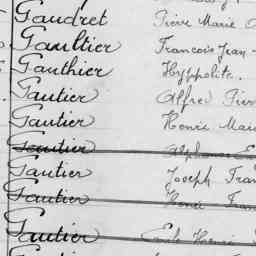 Gaudret Pière Marie
Gaultier Francois Jean
Gauthier Hyppolite.
Gautier Alfred Pier
Gautier Henri Mari
Gautier Alphonse E
Gautier Joseph Fran
Gautier Henri Fran
Gautier Emile Henri